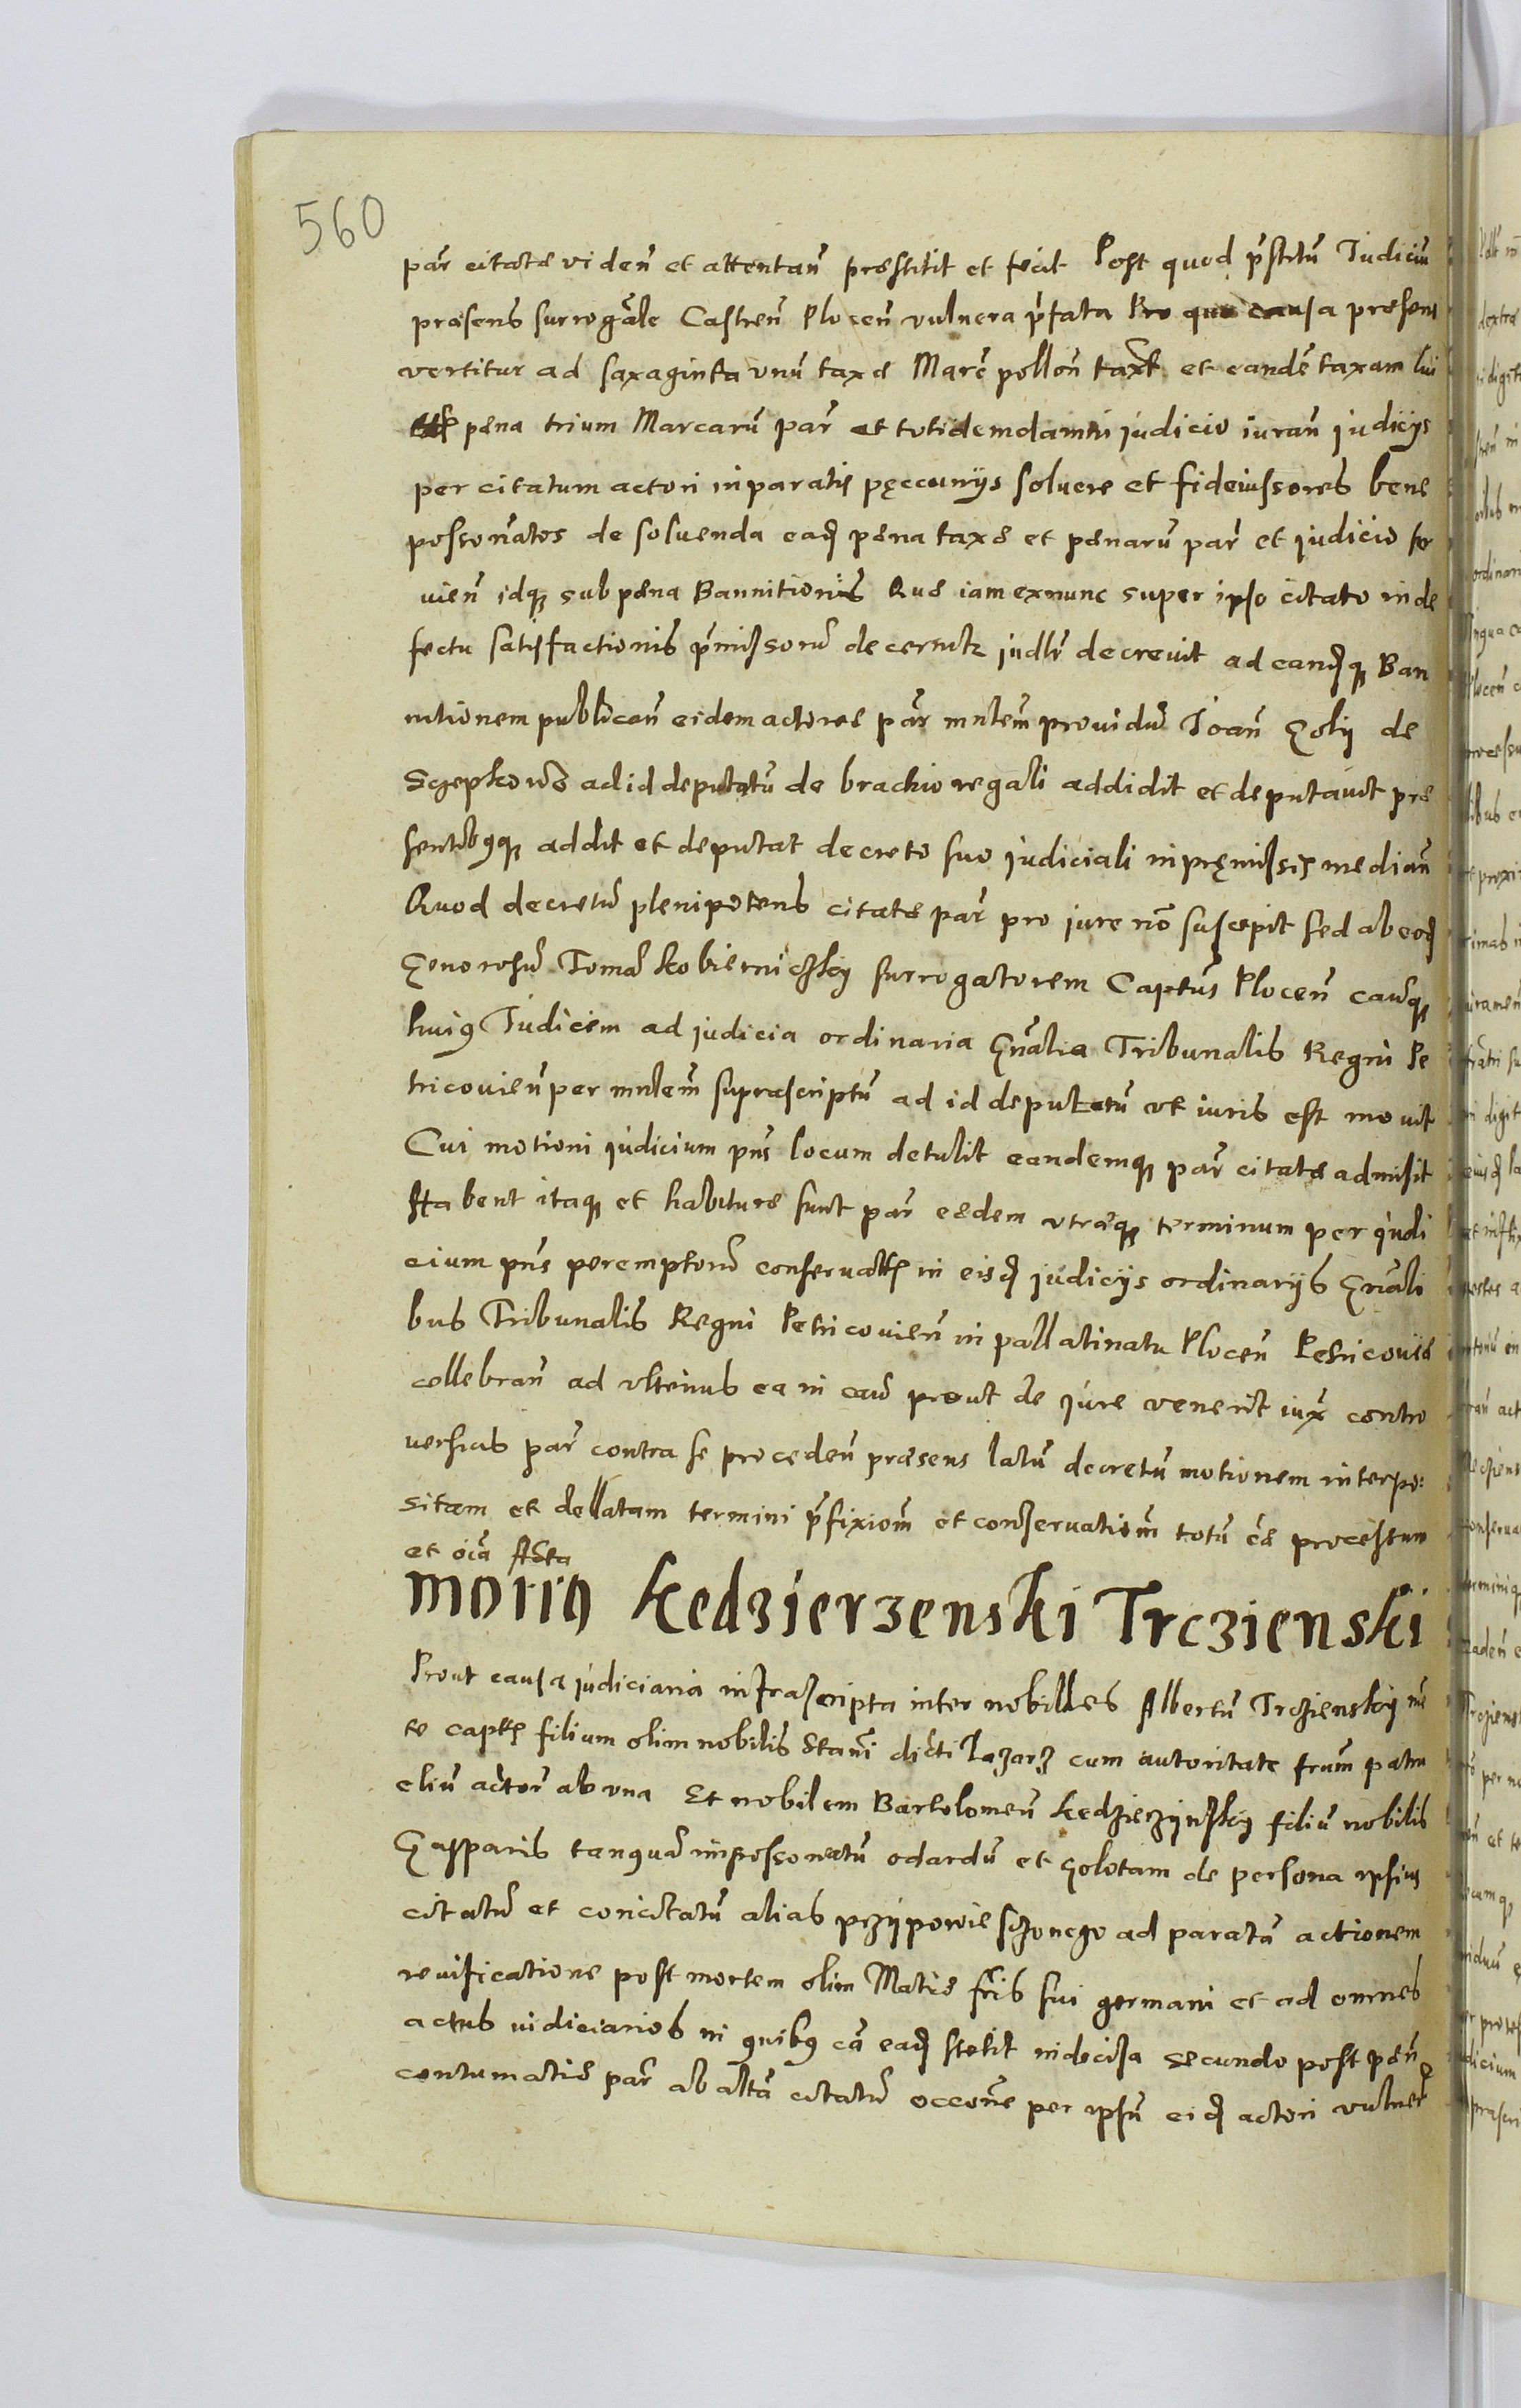 560
par̃ citatæ viden̄ et attentan̄ præstitit et fecit Post quod p̃stitũ Iudiciũ
præsens surrogãle Castren̄ Plocen̄ vulnera p̃fata Pro quo causa præsens
vertitur ad saxaginta vnũ taxæ Marc̃ pollon̄ taxt et eandẽ taxam
pæna trium Marcarũ par̃ et totidem damni judicio iuran̄ judicijs
per citatum actori in paratis pęccunijs soluere et fideiussores bene
possonatos de soluenda eadẽ pæna taxæ et pænarũ par̃ et judicio
vien̄ idq; sub pæna Bannitionis Quæ iam exnunc super ipso citato in de
fectu satisfactionis p̃missorũ decernitr judlr decrevit ad eandẽq; Ban
nitionem publican̄ eidem actoreæ par̃ mnlem̄ providũ Ioan̄ Goły de
Sczepkowo ad id deputatũ de brachio regali addidit et deputavit præ
sentibusq; addit et deputat decreto suo judiciali in pręmissis median̄
Quod decretũ plenipotens citatæ par̃ pro jure nõ suscepit sed ab eodẽ
Generosũ Tomã kobiernicзky surrogatorem Captus̃ Plocen̄ causæq;
huius Iudicem ad judicia ordinaria Gnãlia Tribunalis Regni Pe
tricovien̄ per mnlem̄ suprascriptũ ad id deputatũ vt iuris est movit
Cui motioni judicium pñs locum detulit eandemq; par̃ citatæ admisit
Habent itaq; et habituræ sunt par̃ eædem vtræq; terminum per judi
cium pñs peremptoriũ conservatũ in eisdẽ judicijs ordinarijs Gnãli
bus Tribunalis Regni Petricovien̄ in pallatinatu Plocen̄ Petricoviæ
cellebran̄ ad vlterius ea in causa prout de jure venerit iux̃ contro
versias par̃ contra se proceden̄ præsens latũ decretũ motionem interpo:
sitam et dellatam termini p̃fixiom̄ et conservatiom̄ totũ cæ processum
et oĩa Acta
motio kedzierzenski Trczienski
Prout causa judiciaria infrascripta inter nobilles Albertũ Trcziensky
te captũ filium olim nobilis Stani dicti Lazarz cum autoritate frum̄ patru
eliũ actorẽ ab vna Et nobilem Bartolomeũ kedzierzynsky filiũ nobilis
Gasparis tanquã impossonatũ odardũ et golotam de persona ipsius
citatũ et concitatũ alias przypowiesczonego ad paratã actionem
revificatione post mortem olim Matiæ fris̃ sui germani et ad omnes
actus iudiciarios in quibus cã eadẽ stetit indecisa secundo post pæn̄
contumatiæ par̃ ab altã citatũ occone per ipsũ eidẽ actori vulner̃